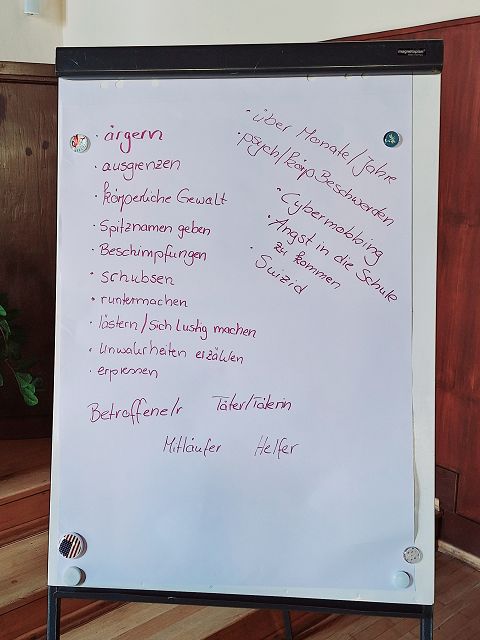 magnetoplan
· ärgern
· ausgrenzen
· körperliche Gewalt
· Spitznamen geben
· Beschimpfungen
· schubsen
· runtermachen
· lästern/sich lustig machen
· Unwahrheiten erzählen
· erpressen
· über Monate/Jahre
· psych/körp. Beschwerden
· Cybermobbing
· Angst in die Schule
zu kommen
· Suizid
Betroffene/r Täter/Täterin
Mitläufer Helfer